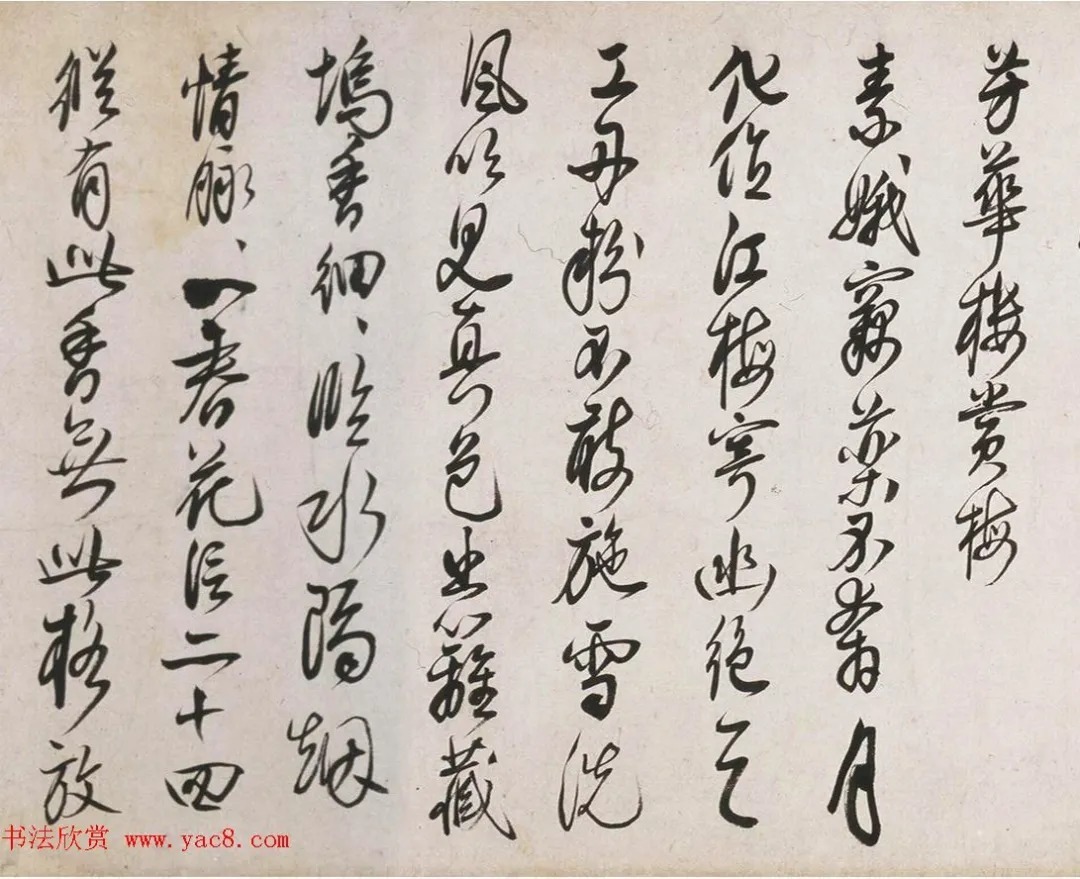 芳華樓賞梅
素娥竊藥不奔月
化作江梅寄幽絕天
工丹粉不敢施雪洗
風吹見真色出籬藏
塢香細、臨水隔烟
情脉、一春花信二十四
縱有此香無此格放
书法欣赏 www.yac8.com